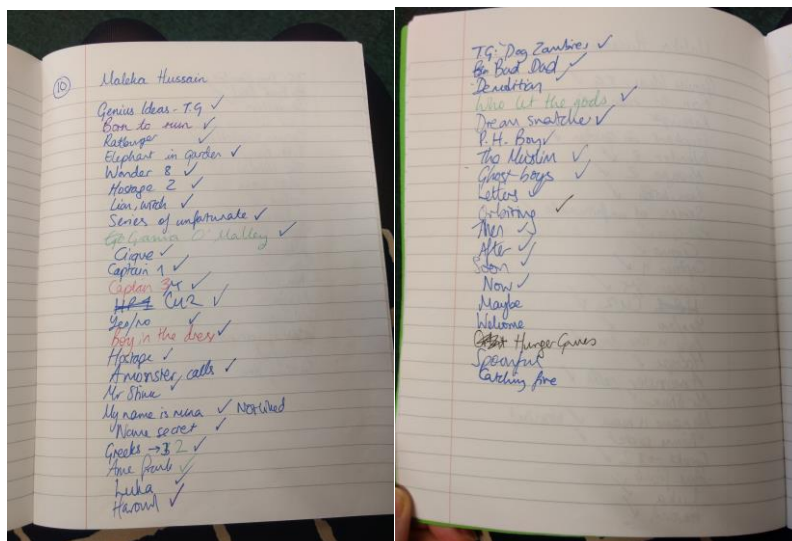 10
Maleka Hussain
Genius Ideas - T.G ✓
Born to run ✓
Ratburger ✓
Elephant in garden ✓
Wonder 8 ✓
Hostage 2 ✓
Lion, witch ✓
Series of unfortunate ✓
Grania O'Malley ✓
Cirque ✓
Captain 1 ✓
Captain ✓
Cu2 ✓
Yes/no ✓
Boy in the dress ✓
✓
A monster, calls ✓
Mr Stink ✓
My name is mina ✓ Not liked
Name secret ✓
Greeks → 2 ✓
✓
Luka ✓
✓
T.G: Dog Zombies ✓
Bad Dad ✓
Demolition ✓
Who let the gods ✓
Dream snatcher ✓
P.H. Boy ✓
Tho Muslim ✓
Ghost boys ✓
Letters ✓
Orbiting ✓
Then ✓
After ✓
Soon ✓
Now ✓
Maybe
Welcome
Hunger Games
Spoonful
Catching fire